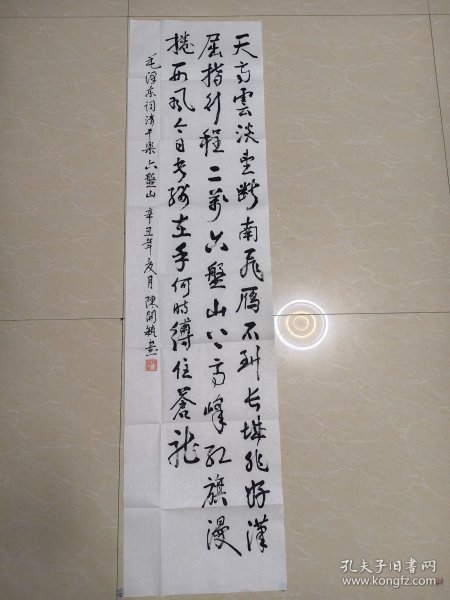 天高雲淡望斷南飛雁不到长城非好漢
屈指行程二萬六盤山上高峰红旗漫
捲西風今日长缨在手何时縛住蒼龍
毛澤东词清平樂六盤山 辛丑年夏月 陳開 书
孔夫子旧书网
www.kongfz.com